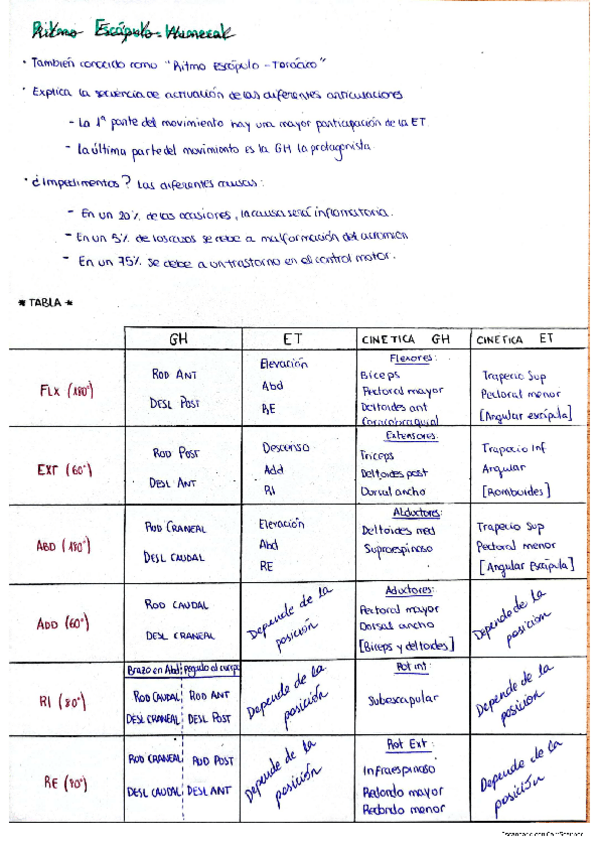 Ritmo Escápulo-Humeral
· También conocido como "Ritmo Escápulo-Torácico"
· Explica la secuencia de activación de las diferentes articulaciones
- La 1ª parte del movimiento hay una mayor participación de la ET.
- La última parte del movimiento es la GH la protagonista.
· ¿Impedimentos? Las diferentes causas:
- En un 20% de las ocasiones, la causa será inflamatoria.
- En un 5% de los casos se debe a malformación del acromion
- En un 75% se debe a un trastorno en el control motor.
* TABLA *
GH ET CINETICA GH CINETICA ET
FLX (180°)
ROD ANT
DESL POST
Elevación
Abd
RE
Flexores:
Biceps
Pectoral mayor
Deltoides ant
Coracobraquial
Trapecio Sup
Pectoral menor
[Angular escápula]
EXT (60°)
ROD POST
DESL ANT
Descenso
Add
RI
Extensores:
Triceps
Deltoides post
Dorsal ancho
Trapecio Inf
Angular
[Romboides]
ABD (180°)
ROD CRANEAL
DESL CAUDAL
Elevación
Abd
RE
Abductores:
Deltoides med
Supraespinoso
Trapecio Sup
Pectoral menor
[Angular Escápula]
ADD (60°)
ROD CAUDAL
DESL CRANEAL
Depende de la
posición
Aductores:
Pectoral mayor
Dorsal ancho
[Biceps y deltoides]
Depende de la
posición
RI (80°)
Brazo en Abd: Pegado al cuerpo
ROD CAUDAL ROD ANT
DESL CRANEAL DESL POST
Depende de la
posición
Rot int:
Subescapular
Depende de la
posición
RE (80°)
ROD CRANEAL ROD POST
DESL CAUDAL DESL ANT
Depende de la
posición
Rot Ext:
Infraespinoso
Redondo mayor
Redondo menor
Depende de la
posición
Escaneado con CamScanner